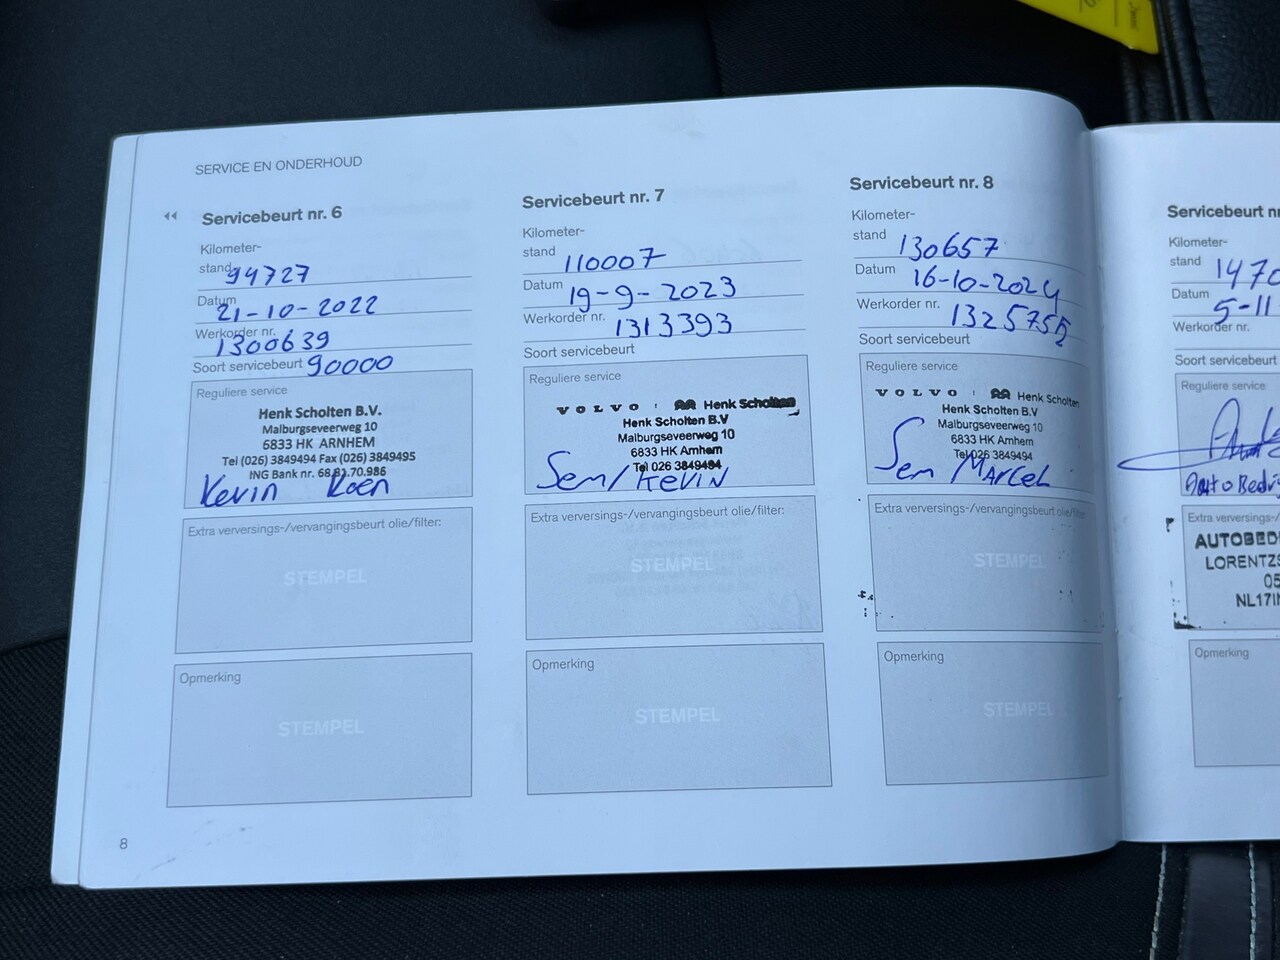 SERVICE EN ONDERHOUD
Servicebeurt nr. 6
Kilometer-
stand 94727
Datum 21-10-2022
Werkorder nr. 1300639
Soort servicebeurt 90000
Reguliere service
Henk Scholten B.V.
Malburgseveerweg 10
6833 HK ARNHEM
Tel (026) 3849494 Fax (026) 3849495
ING Bank nr. 68.82.70.986
Kevin Koen
Extra verversings-/vervangingsbeurt olie/filter:
STEMPEL
Opmerking
STEMPEL
8
Servicebeurt nr. 7
Kilometer-
stand 110007
Datum 19-9-2023
Werkorder nr. 1313393
Soort servicebeurt
Reguliere service
VOLVO Henk Scholten
Henk Scholten B.V
Malburgseveerweg 10
6833 HK Arnhem
Tel 026 3849494
Sem/Kevin
Extra verversings-/vervangingsbeurt olie/filter:
STEMPEL
Opmerking
STEMPEL
Servicebeurt nr. 8
Kilometer-
stand 130657
Datum 16-10-2024
Werkorder nr. 1325755
Soort servicebeurt
Reguliere service
VOLVO Henk Scholten
Henk Scholten B.V
Malburgseveerweg 10
6833 HK Arnhem
Tel 026 3849494
Sem Marcel
Extra verversings-/vervangingsbeurt olie/filter:
STEMPEL
Opmerking
STEMPEL
Servicebeurt nr
Kilometer-
stand 1470
Datum 5-11
Werkorder nr.
Soort servicebeurt
Reguliere service
Auto Bedri
Extra verversings-/
AUTOBED
LORENTZS
05
NL17I
Opmerking